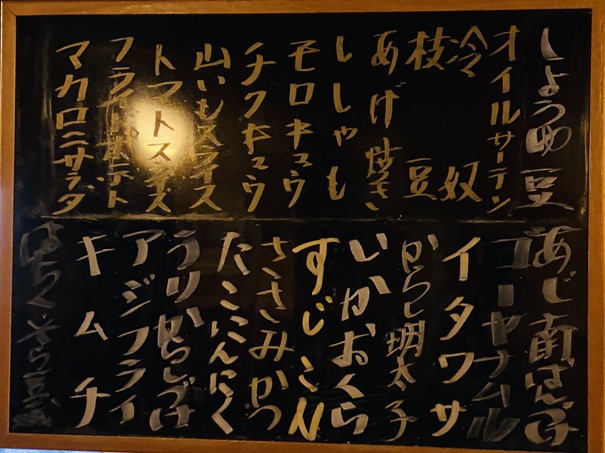 しょうゆ豆
オイルサーデン
冷奴
枝豆
あげ焼き
ししゃも
モロキュウ
チクキュウ
山いもスライス
トマトスライス
フライドポテト
マカロニサラダ
あじ南ばんづけ
ゴーヤナムル
イタワサ
からし明太子
いかおくら
すじこん
ささみかつ
たこにんにく
うりからしづけ
アジフライ
キムチ